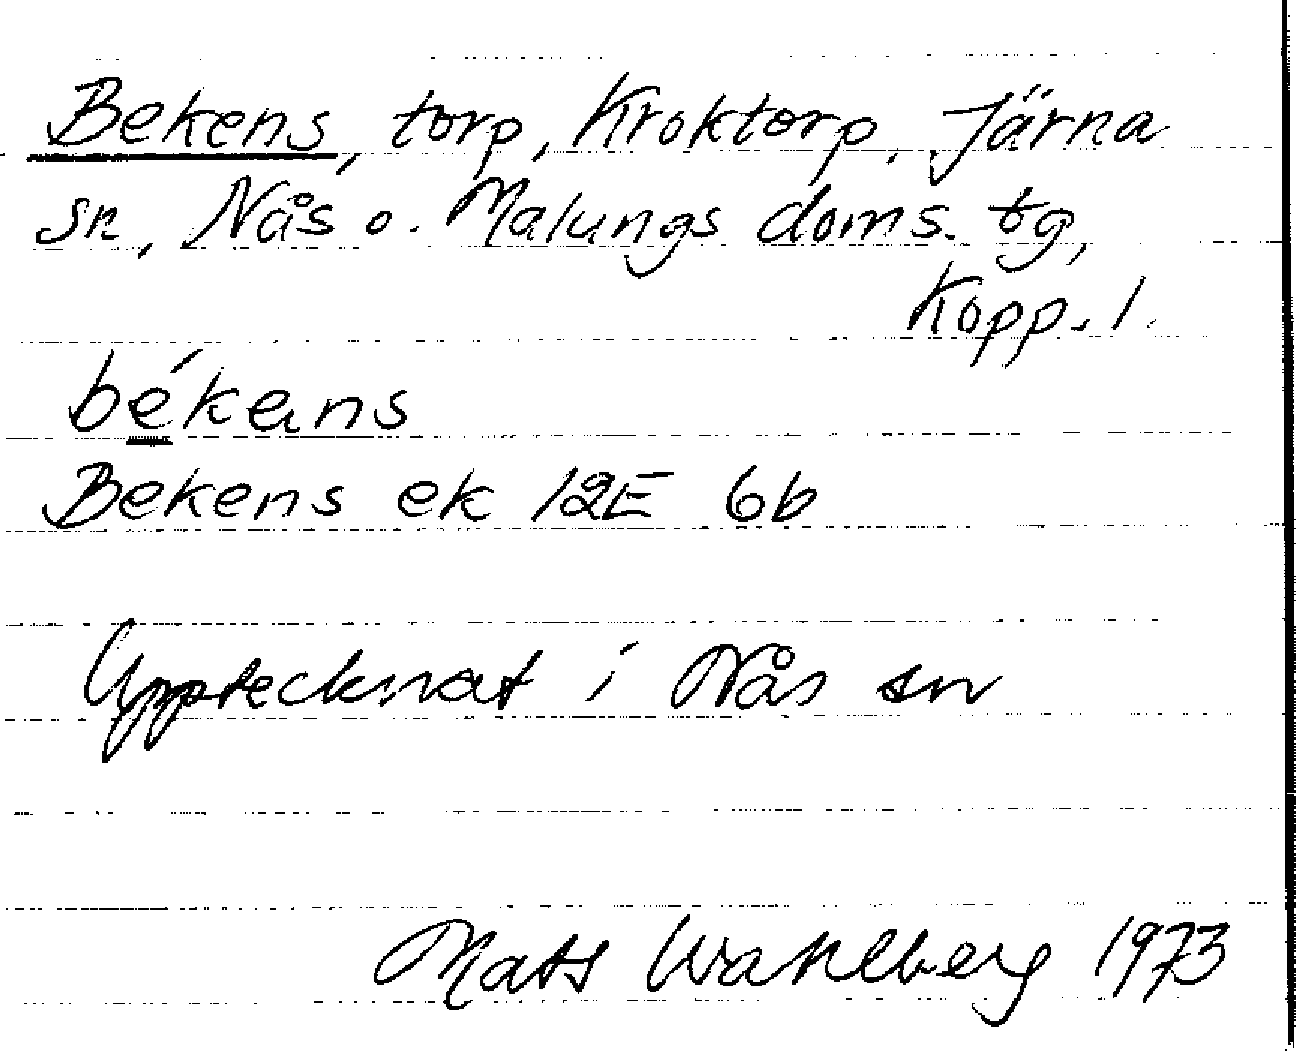 Bekens, torp, Kroktorp, Järna
sn, Nås o. Malungs doms. tg,
Kopp. l.
békans
Bekens ek 12E 6b
Upptecknat i Nås sn
Mats Wahlberg 1973